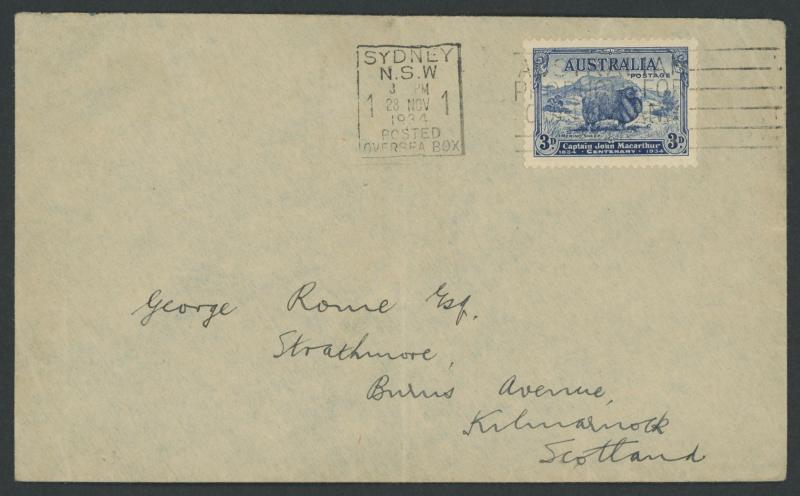 SYDNEY
N.S.W
3 PM
1 28 NOV 1
1934
POSTED
OVERSEA BOX
AUSTRALIA
POSTAGE
3D Captain John Macarthur 3D
1834 CENTENARY 1934
George Rome Esq.
Strathmore,
Burns Avenue,
Kilmarnock
Scotland